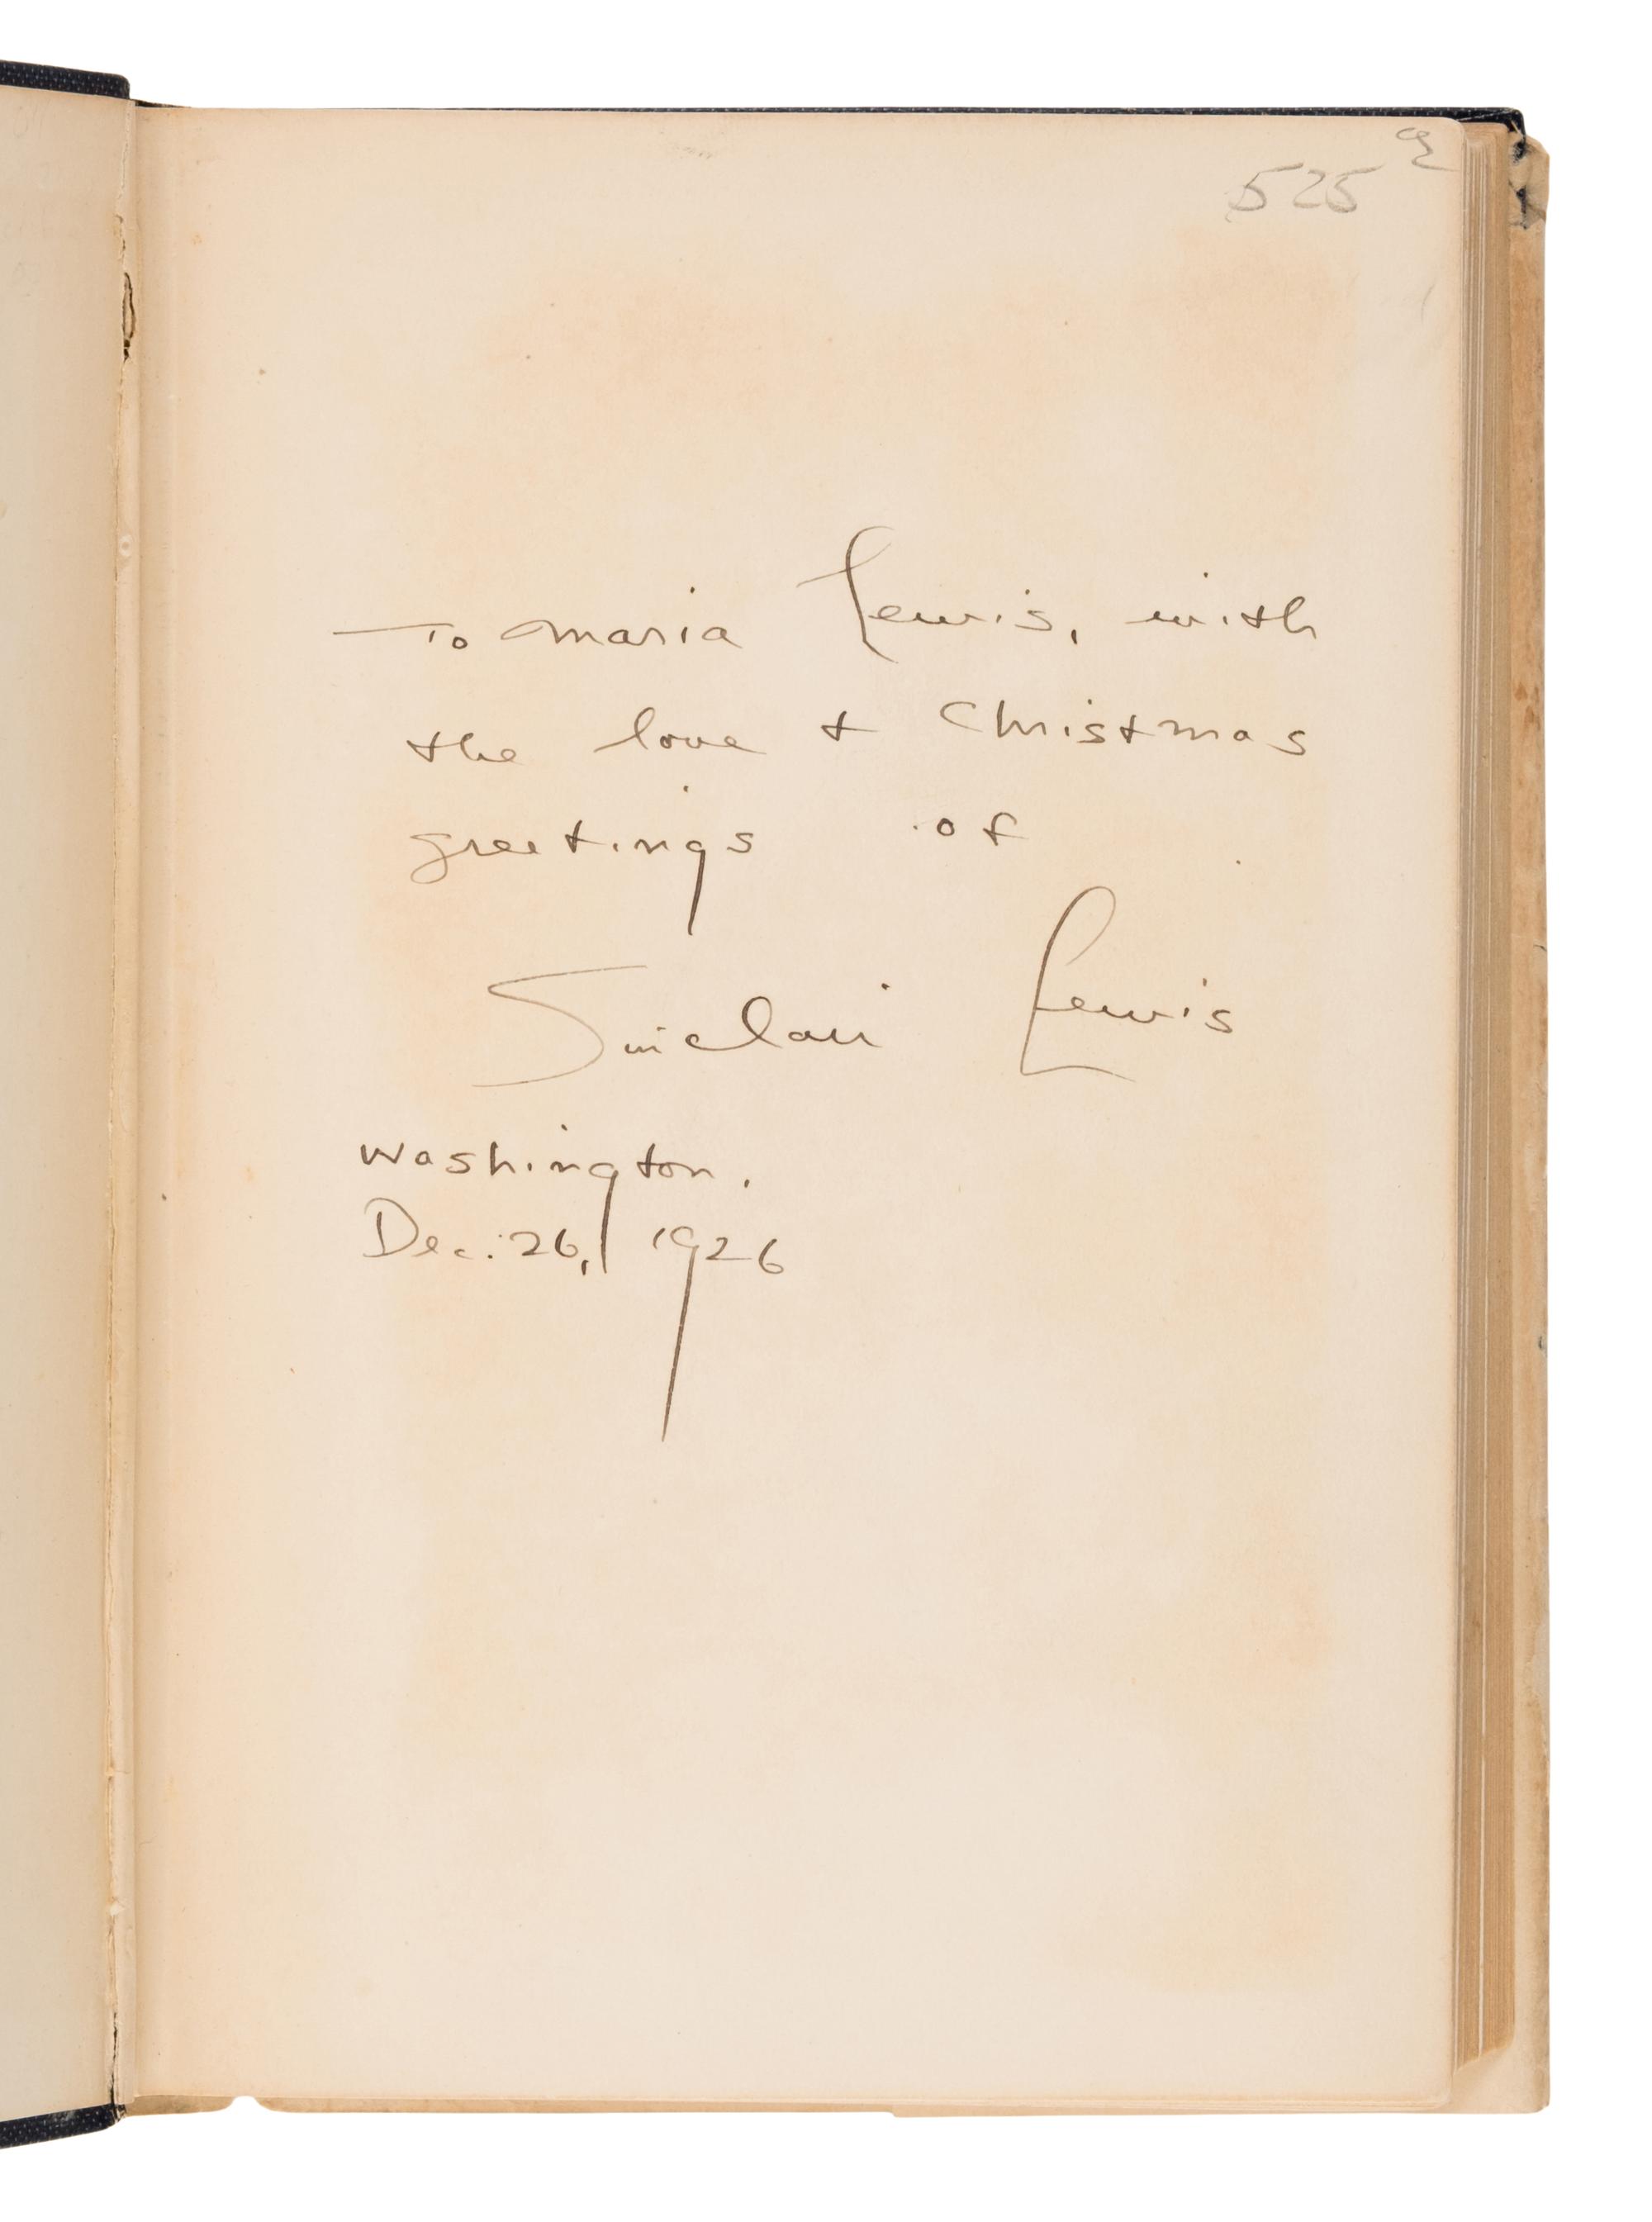 525
To Maria Lewis, with
the love + Christmas
greetings of
Sinclair Lewis
Washington.
Dec. 26, 1926